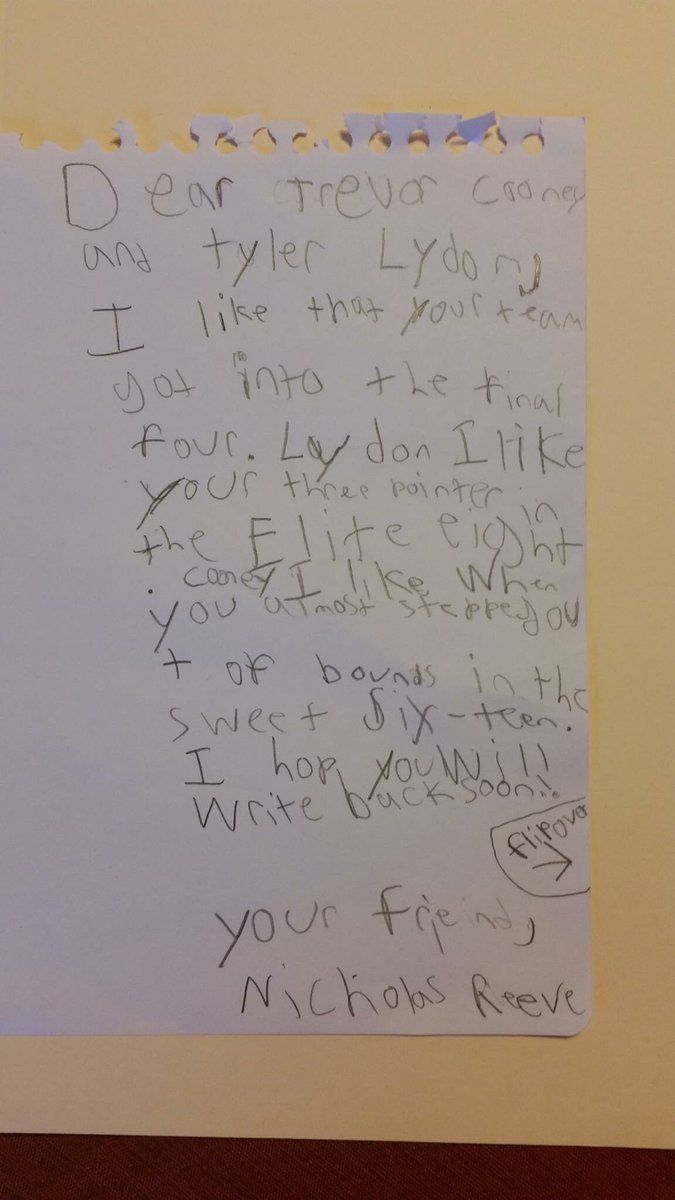 Dear Trevor Cooney
and tyler Lydon,
I like that your team
got into the final
four. Lydon I like
your three pointer
in
the Elite eight
. cooney I like when
you almost stepped ou
t of bounds in the
sweet Six-teen.
I hop you will
Write back soon!!
flip over
your friend,
Nicholas Reeve